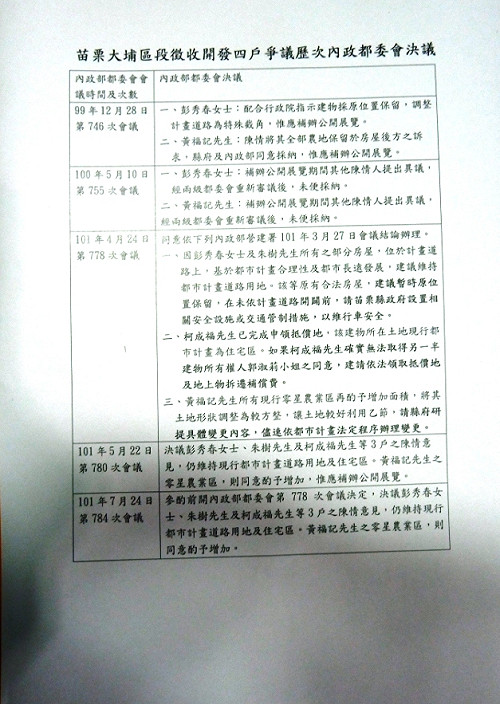 苗栗大埔區段徵收開發四戶爭議歷次內政都委會決議
內政部都委會會
議時間及次數
內政部都委會決議
99 年 12 月 28 日
第 746 次會議
一、彭秀春女士：配合行政院指示建物採原位置保留，調整
計畫道路為特殊截角，惟應補辦公開展覽。
二、黃福記先生：陳情將其全部農地保留於房屋後方之訴
求，縣府及內政部同意採納，惟應補辦公開展覽。
100 年 5 月 10 日
第 755 次會議
一、彭秀春女士：補辦公開展覽期間其他陳情人提出異議，
經兩級都委會重新審議後，未便採納。
二、黃福記先生：補辦公開展覽期間其他陳情人提出異議，
經兩級都委會重新審議後，未便採納。
101 年 4 月 24 日
第 778 次會議
同意依下列內政部營建署 101 年 3 月 27 日會議結論辦理。
一、因彭秀春女士及朱樹先生所有之部分房屋，位於計畫道
路上，基於都市計畫合理性及都市長遠發展，建議維持
都市計畫道路用地。該等原有合法房屋，建議暫時原位
置保留，在未依計畫道路開闢前，請苗栗縣政府設置相
關安全設施或交通管制措施，以維行車安全。
二、柯成福先生已完成申領抵價地，該建物所在土地現行都
市計畫為住宅區。如果柯成福先生確實無法取得另一半
建物所有權人郭淑莉小姐之同意，建請依法領取抵價地
及地上物拆遷補償費。
三、黃福記先生所有現行零星農業區再酌予增加面積，將其
土地形狀調整為較方整，讓土地較好利用乙節，請縣府研
提具體變更內容，儘速依都市計畫法定程序辦理變更。
101 年 5 月 22 日
第 780 次會議
決議彭秀春女士、朱樹先生及柯成福先生等 3 戶之陳情意
見，仍維持現行都市計畫道路用地及住宅區。黃福記先生之
零星農業區，則同意酌予增加，惟應補辦公開展覽。
101 年 7 月 24 日
第 784 次會議
參酌前開內政部都委會第 778 次會議決定，決議彭秀春女
士、朱樹先生及柯成福先生等 3 戶之陳情意見，仍維持現行
都市計畫道路用地及住宅區。黃福記先生之零星農業區，則
同意酌予增加。